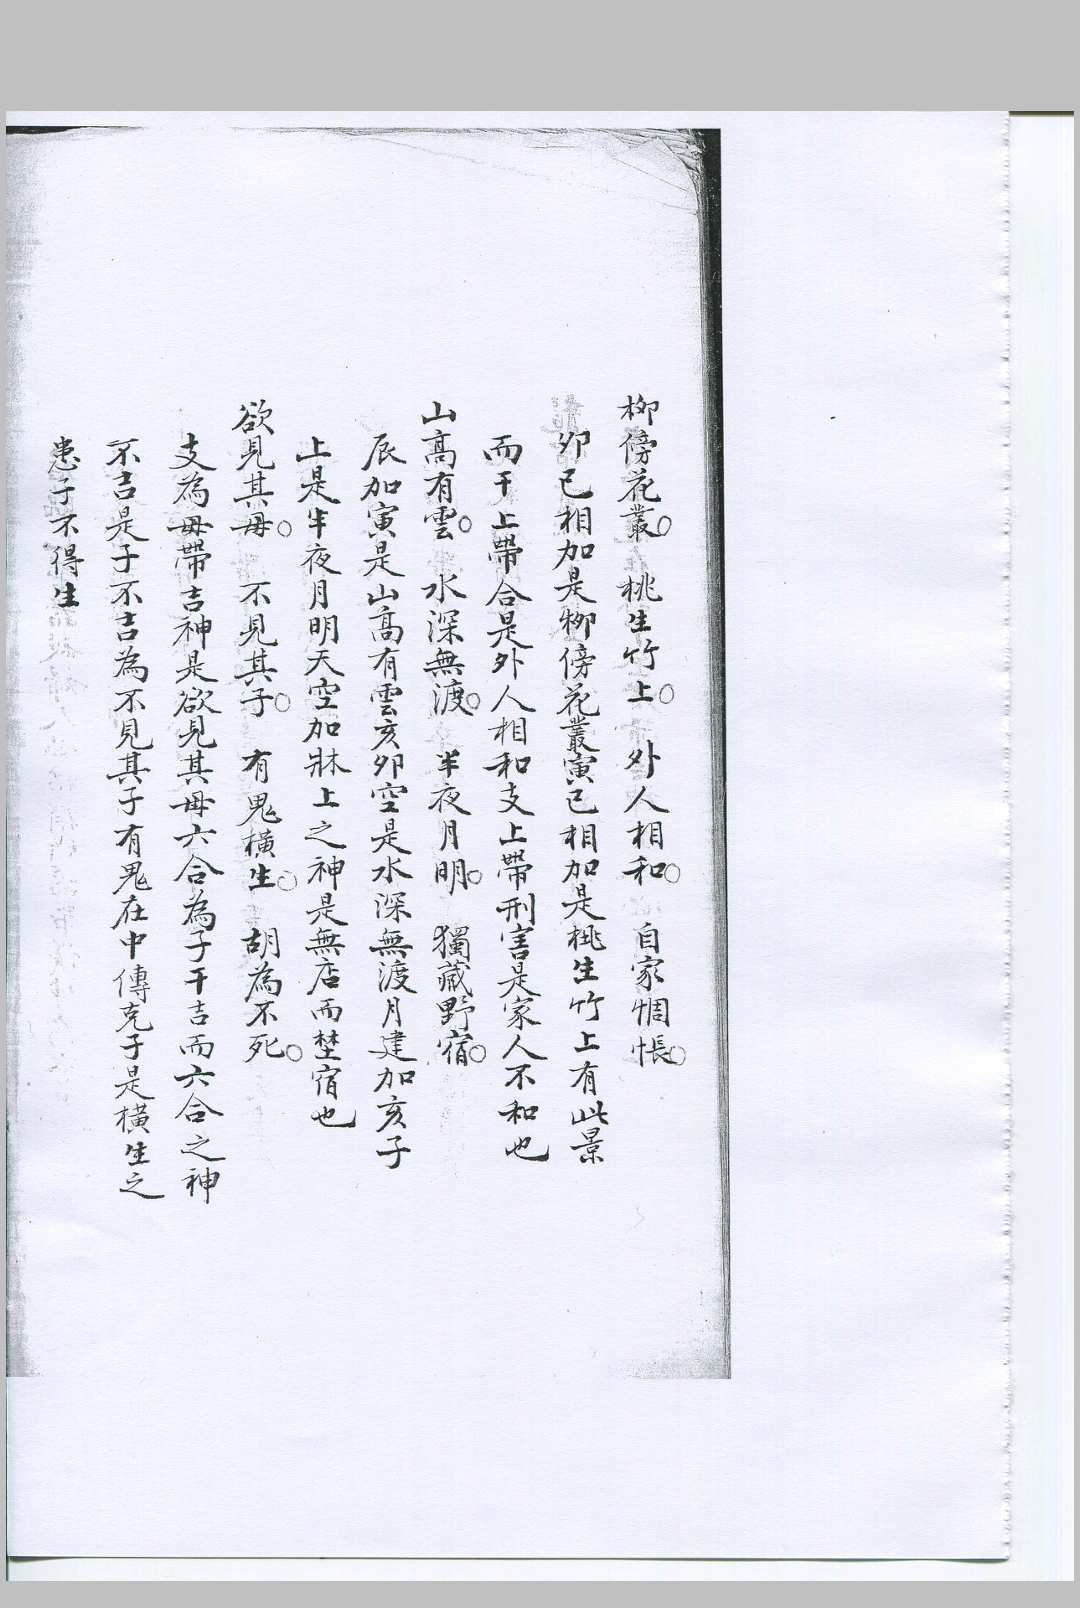 柳傍花叢○桃生竹上○外人相和○自家惆悵○
卯已相加是柳傍花叢寅已相加是桃生竹上有此景
而干上帶合是外人相和支上帶刑害是家人不和也
山高有雲○水深無渡○半夜月明○獨藏野宿○
辰加寅是山高有雲亥卯空是水深無渡月建加亥子
上是半夜月明天空加牀上之神是無店而埜宿也
欲見其毋○不見其子○有鬼橫生○胡為不死○
支為毋帶吉神是欲見其毋六合為子干吉而六合之神
不吉是子不吉為不見其子有鬼在中傳克子是橫生之
患子不得生